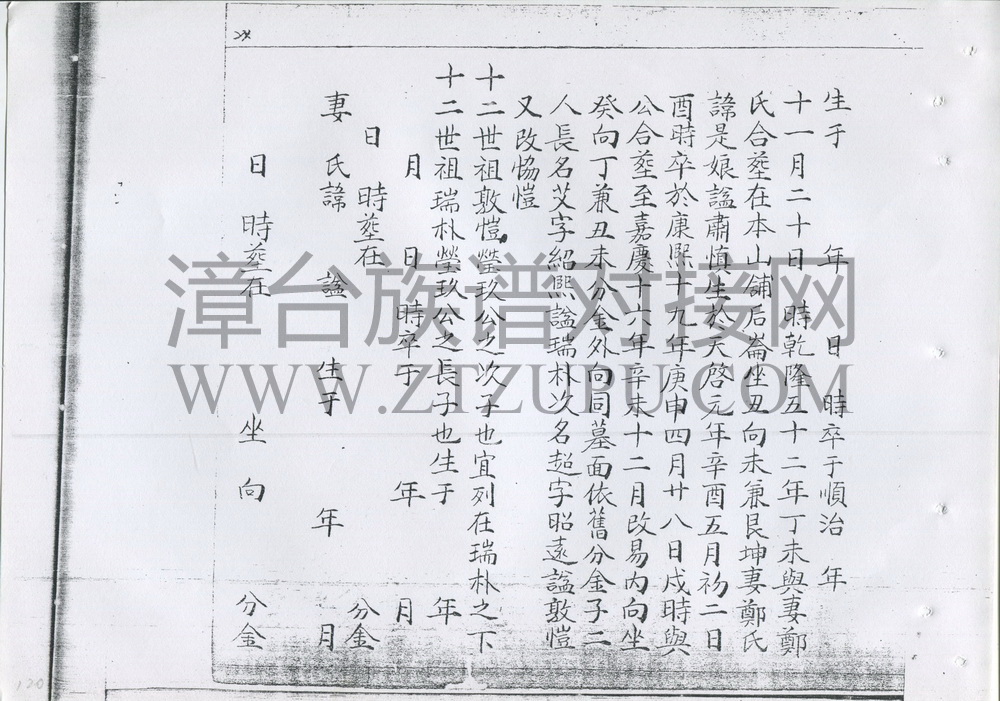 生于 年 日 時卒于順治 年
十一月二十日 時乾隆五十二年丁未與妻鄭
氏合塟在本山舖后崙坐丑向未兼艮坤妻鄭氏
諱是娘諡肅慎生於天啓元年辛酉五月初二日
酉時卒於康熙十九年庚申四月廿八日戌時與
公合塟至嘉慶十六年辛未十二月改易內向坐
癸向丁兼丑未分金外向同墓面依舊分金子二
人長名艾字紹熙諡瑞朴次名超字昭遠諡敦愷
又改恊愷
十二世祖敦愷瑩玖公之次子也宜列在瑞朴之下
十二世祖瑞朴瑩玖公之長子也生于 年
月 日時卒于 年 月
日 時塟在 分金
妻 氏諱 諡 生于 年 月
日 時塟在 坐 向 分金
漳台族谱对接网
WWW.ZTZUPU.COM
120